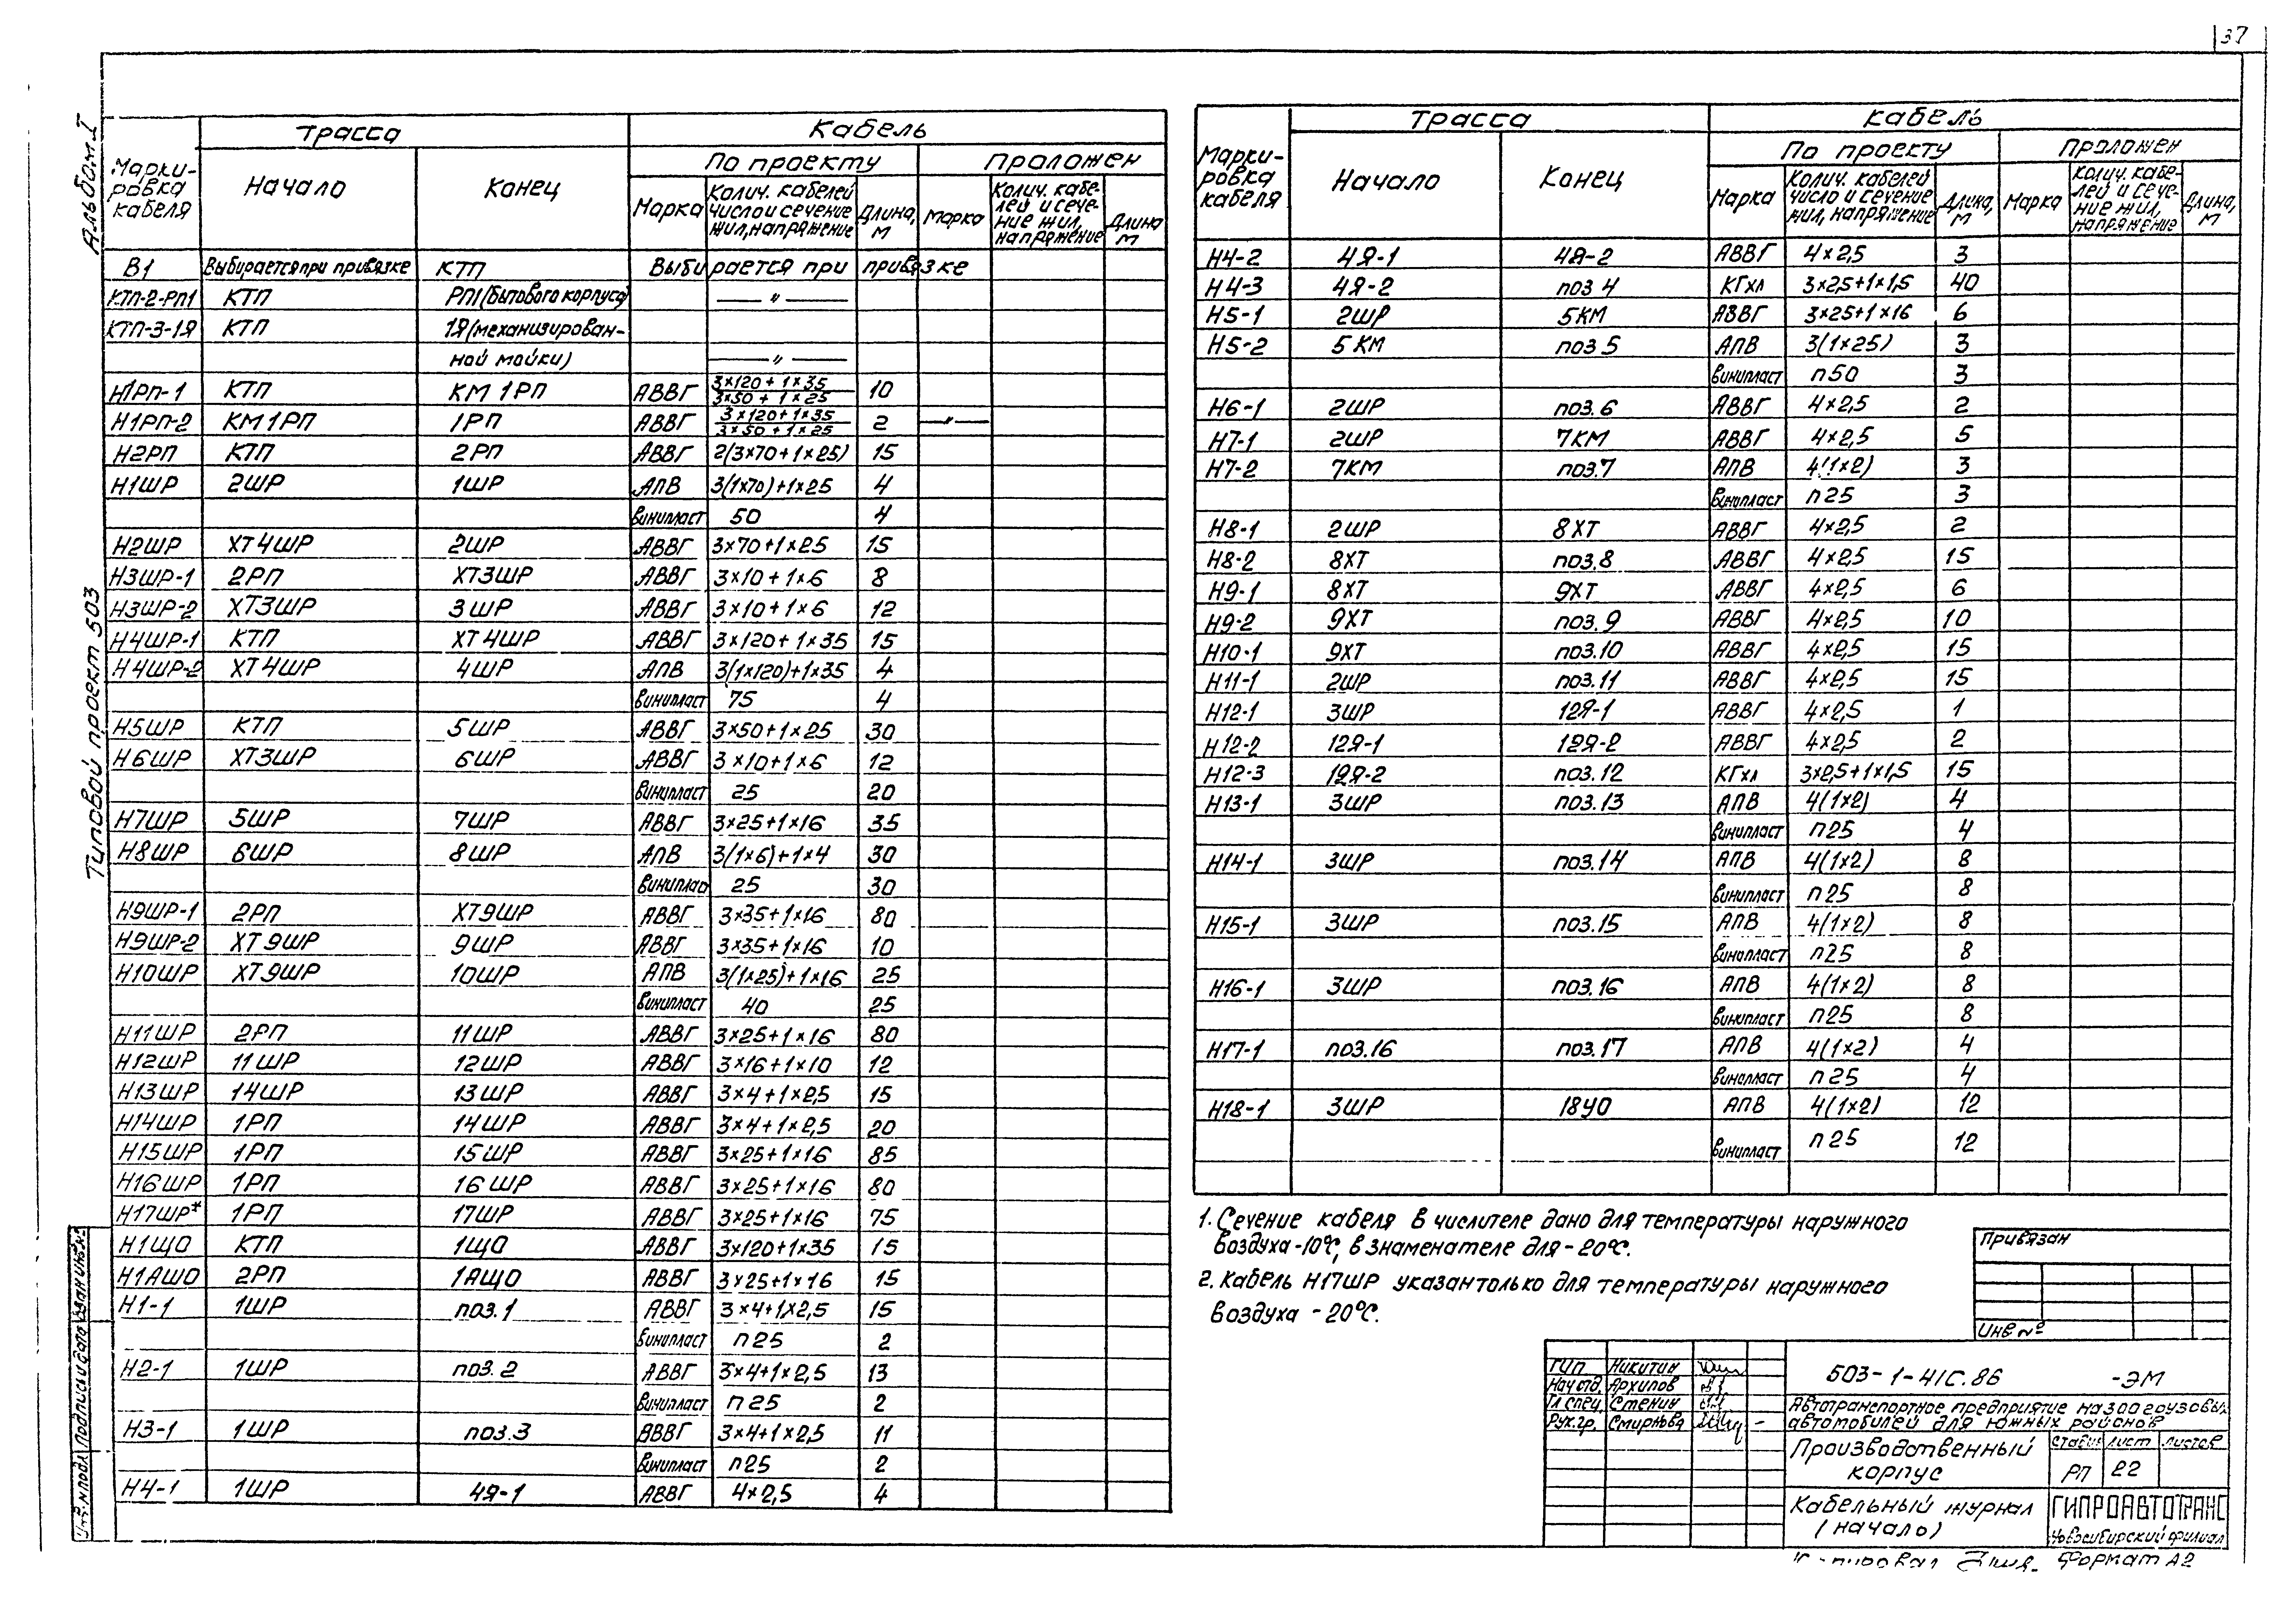 37
Альбом I
Типовой проект 503
Марки-
ровка
кабеля
Трасса
Кабель
Начало
Конец
По проекту
Проложен
Марка
Колич. кабелей
число и сечение
жил, напряжение
Длина,
м
Марка
Колич. кабе-
лей и сече-
ние жил,
напряжение
Длина
м
В1 Выбирается при привязке КТП Выбирается при привязке
КТП-2-РП1 КТП РП1 (бытового корпуса) — " —
КТП-3-1Я КТП 1Я (механизирован-
ной мойки) — " —
Н1РП-1 КТП КМ 1РП АВВГ 3×120+1×35 / 3×50+1×25 10
Н1РП-2 КМ1РП 1РП АВВГ 3×120+1×35 / 3×50+1×25 2 — " —
Н2РП КТП 2РП АВВГ 2(3×70+1×25) 15
Н1ШР 2ШР 1ШР АПВ 3(1×70)+1×25 4
Винипласт 50 4
Н2ШР ХТ4ШР 2ШР АВВГ 3×70+1×25 15
Н3ШР-1 2РП ХТ3ШР АВВГ 3×10+1×6 8
Н3ШР-2 ХТ3ШР 3ШР АВВГ 3×10+1×6 12
Н4ШР-1 КТП ХТ4ШР АВВГ 3×120+1×35 15
Н4ШР-2 ХТ4ШР 4ШР АПВ 3(1×120)+1×35 4
Винипласт 75 4
Н5ШР КТП 5ШР АВВГ 3×50+1×25 30
Н6ШР ХТ3ШР 6ШР АВВГ 3×10+1×6 12
Винипласт 25 20
Н7ШР 5ШР 7ШР АВВГ 3×25+1×16 35
Н8ШР 6ШР 8ШР АПВ 3(1×6)+1×4 30
Виниплас 25 30
Н9ШР-1 2РП ХТ9ШР АВВГ 3×35+1×16 80
Н9ШР-2 ХТ9ШР 9ШР АВВГ 3×35+1×16 10
Н10ШР ХТ9ШР 10ШР АПВ 3(1×25)+1×16 25
Винипласт 40 25
Н11ШР 2РП 11ШР АВВГ 3×25+1×16 80
Н12ШР 11ШР 12ШР АВВГ 3×16+1×10 12
Н13ШР 14ШР 13ШР АВВГ 3×4+1×2,5 15
Н14ШР 1РП 14ШР АВВГ 3×4+1×2,5 20
Н15ШР 1РП 15ШР АВВГ 3×25+1×16 85
Н16ШР 1РП 16ШР АВВГ 3×25+1×16 80
Н17ШР* 1РП 17ШР АВВГ 3×25+1×16 75
Н1ЩО КТП 1ЩО АВВГ 3×120+1×35 15
Н1АЩО 2РП 1АЩО АВВГ 3×25+1×16 15
Н1-1 1ШР поз.1 АВВГ 3×4+1×2,5 15
Винипласт п25 2
Н2-1 1ШР поз.2 АВВГ 3×4+1×2,5 13
Винипласт п25 2
Н3-1 1ШР поз.3 АВВГ 3×4+1×2,5 11
Винипласт п25 2
Н4-1 1ШР 4Я-1 АВВГ 4×2,5 4
Марки-
ровка
кабеля
Трасса
Кабель
Начало
Конец
По проекту
Проложен
Марка
Колич. кабелей
число и сечение
жил, напряжение
Длина,
м
Марка
Колич. кабе-
лей и сече-
ние жил,
напряжение
Длина,
м
Н4-2 4Я-1 4Я-2 АВВГ 4×2,5 3
Н4-3 4Я-2 поз 4 КГхл 3×2,5+1×1,5 40
Н5-1 2ШР 5КМ АВВГ 3×25+1×16 6
Н5-2 5КМ поз 5 АПВ 3(1×25) 3
Винипласт п50 3
Н6-1 2ШР поз.6 АВВГ 4×2,5 2
Н7-1 2ШР 7КМ АВВГ 4×2,5 5
Н7-2 7КМ поз.7 АПВ 4(1×2) 3
Винипласт п25 3
Н8-1 2ШР 8ХТ АВВГ 4×2,5 2
Н8-2 8ХТ поз.8 АВВГ 4×2,5 15
Н9-1 8ХТ 9ХТ АВВГ 4×2,5 6
Н9-2 9ХТ поз.9 АВВГ 4×2,5 10
Н10-1 9ХТ поз.10 АВВГ 4×2,5 15
Н11-1 2ШР поз.11 АВВГ 4×2,5 15
Н12-1 3ШР 12Я-1 АВВГ 4×2,5 1
Н12-2 12Я-1 12Я-2 АВВГ 4×2,5 2
Н12-3 12Я-2 поз.12 КГхл 3×2,5+1×1,5 15
Н13-1 3ШР поз.13 АПВ 4(1×2) 4
Винипласт п25 4
Н14-1 3ШР поз.14 АПВ 4(1×2) 8
Винипласт п25 8
Н15-1 3ШР поз.15 АПВ 4(1×2) 8
Винипласт п25 8
Н16-1 3ШР поз.16 АПВ 4(1×2) 8
Винипласт п25 8
Н17-1 поз.16 поз.17 АПВ 4(1×2) 4
Винипласт п25 4
Н18-1 3ШР 18УО АПВ 4(1×2) 12
Винипласт п25 12
1. Сечение кабеля в числителе дано для температуры наружного
воздуха -10°С, в знаменателе для -20°С.
2. Кабель Н17ШР указан только для температуры наружного
воздуха -20°С.
Привязан
Инв №
ГИП Никитин
Нач отд. Архипов
Гл спец. Стенин
Рук.гр. Смирнова
503-1-41с.86 -ЭМ
Автотранспортное предприятие на 300 грузовых
автомобилей для южных районов
Производственный
корпус
Стадия Лист Листов
РП 22
Кабельный журнал
(начало)
ГИПРОАВТОТРАНС
Новосибирский филиал
Формат А2
Инв. № подл. Подпись и дата Взам инв. №